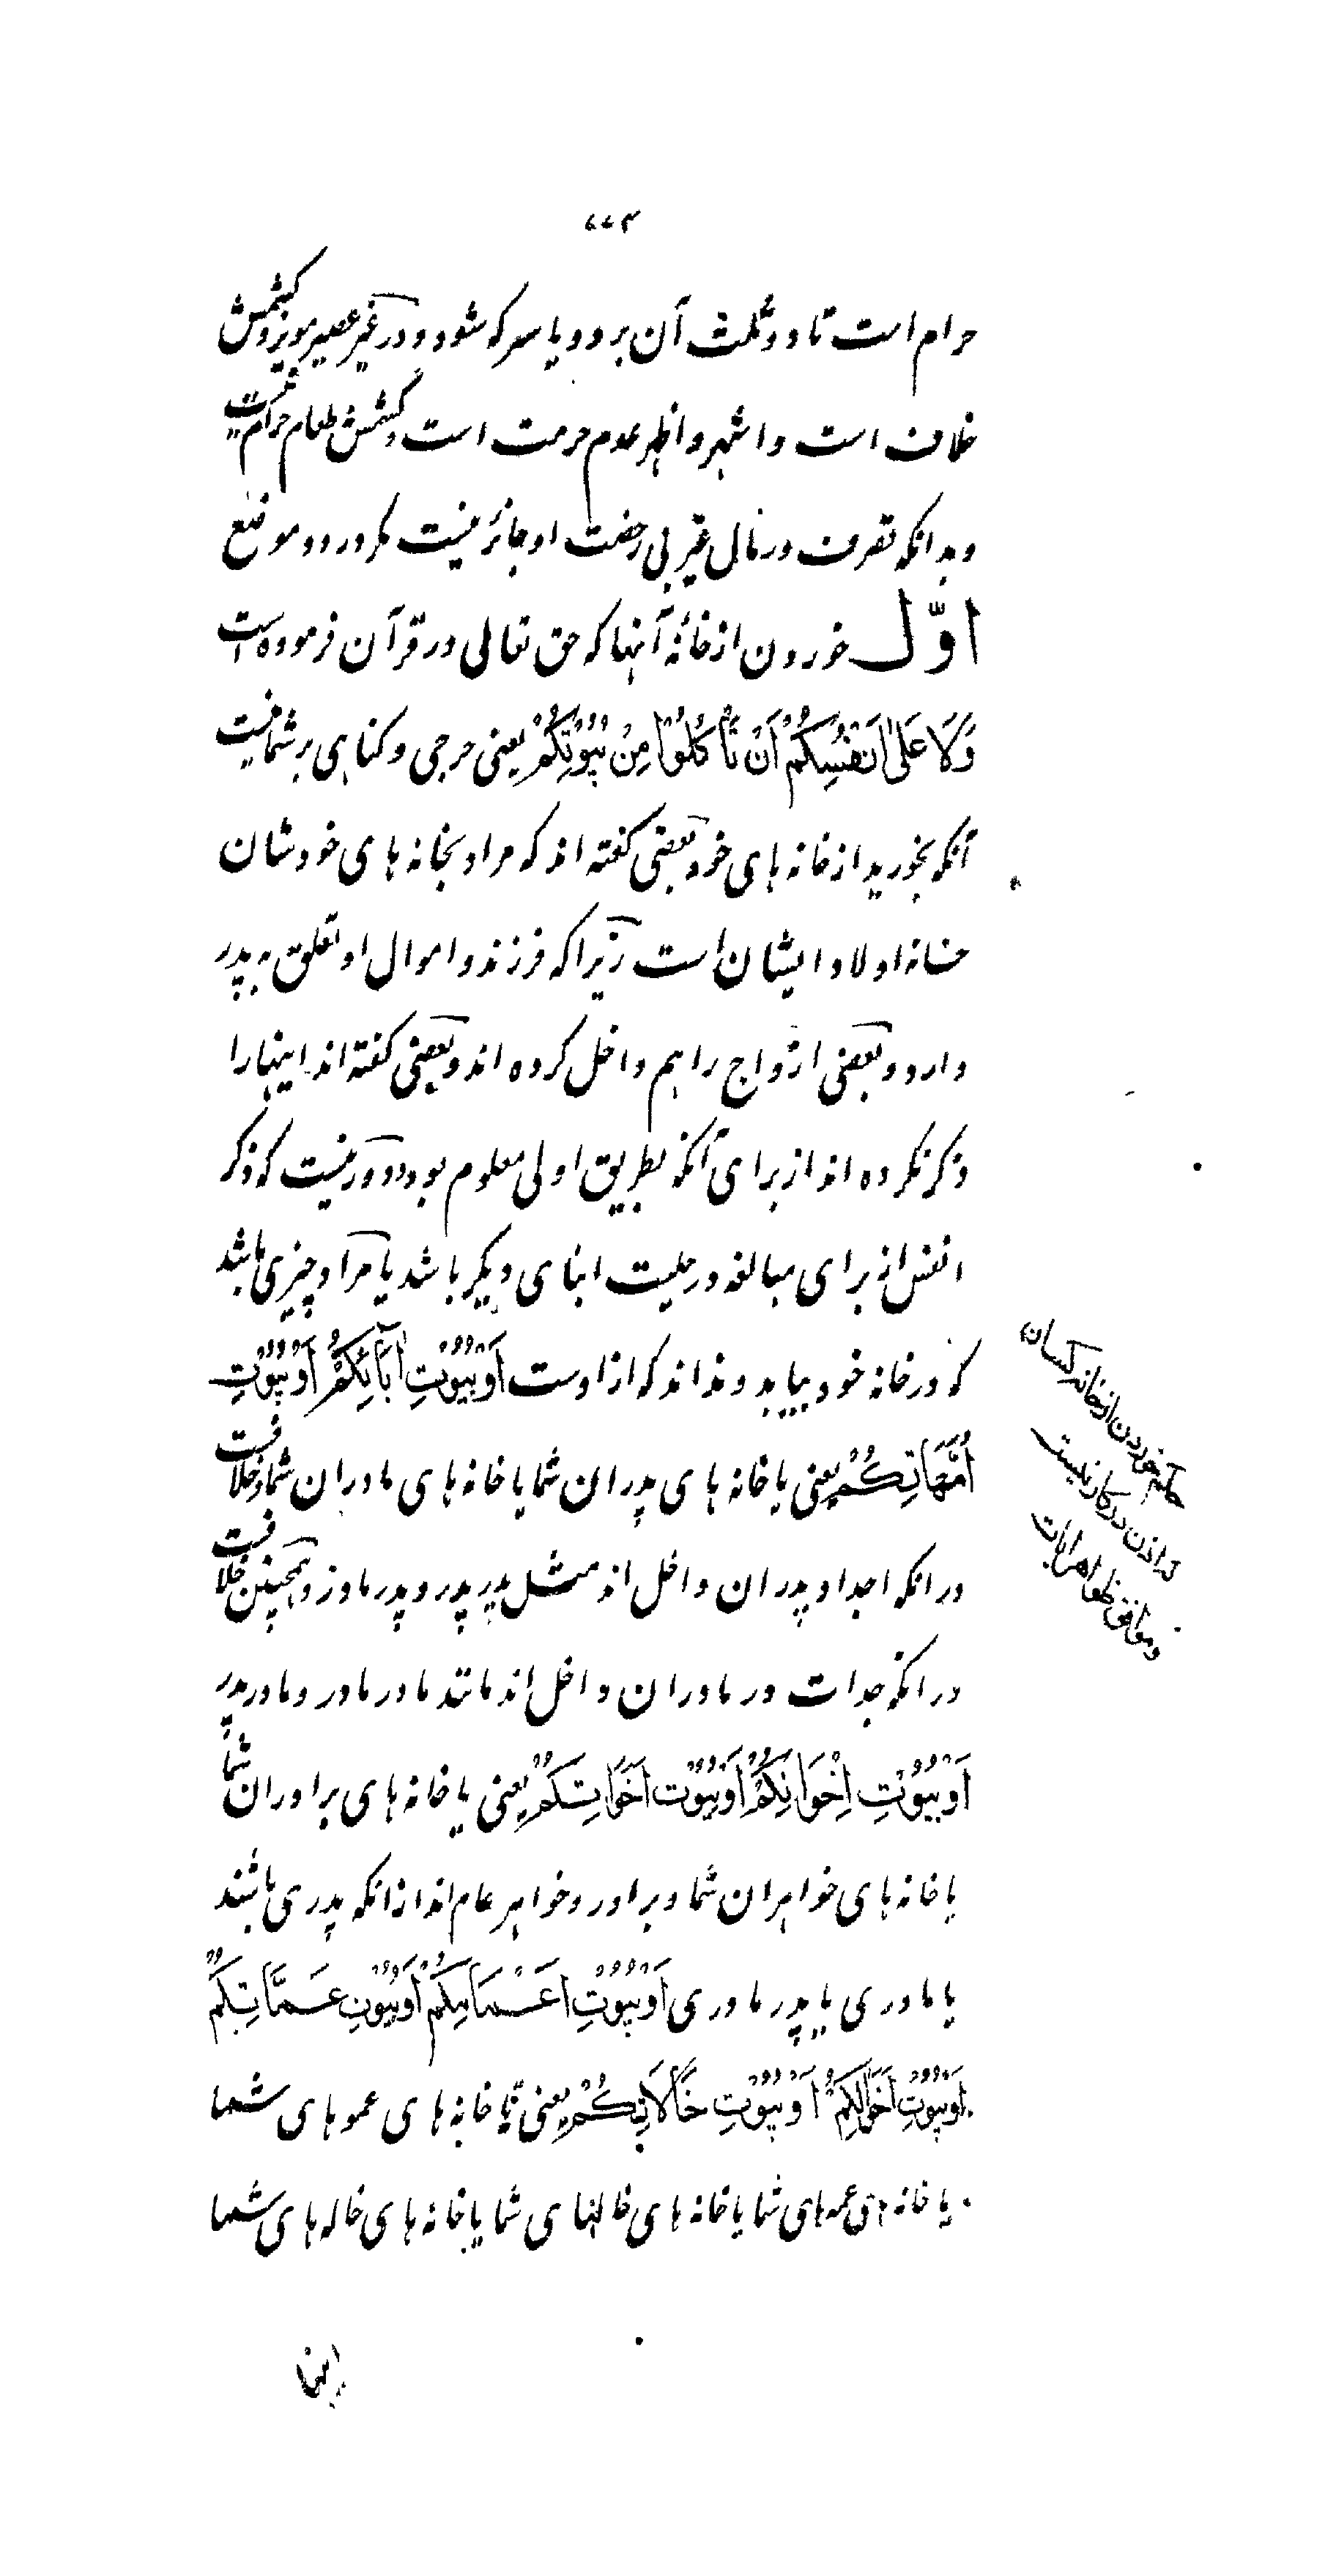 حرام است تا دو ثلث آن برود و یا سرکه شود و در غیر عصیر مویز و کشمش
خلاف است و اشهر و اظهر عدم حرمت است و کشمش طعام حرام نیست
و بدانکه تصرف در مال غیر بی رخصت او جائز نیست مگر در دو موضع
اوّل خوردن از خانهٔ آنها که حق تعالی در قرآن فرموده است
وَلَا عَلَىٰ اَنْفُسِكُمْ اَنْ تَأْكُلُوْا مِنْ بُيُوْتِكُمْ یعنی حرجی و کناهی بر شما نیست
آنکه بخورید از خانه های خود بعضی کفته اند که مراد بخانه های خودشان
خانه اولاد ایشان است زیرا که فرزند و اموال او تعلق به پدر
دارد و بعضی ازواج را هم داخل کرده اند و بعضی کفته اند اینها را
ذکر نکرده اند از برای آنکه بطریق اولی معلوم بود و دور نیست که ذکر
انفس از برای مبالغه در حلیت ابنای دیکر باشد یا مراد چیزی باشد
که در خانه خود بیابد و نداند که از اوست اَوْ بُيُوْتِ اٰبَآئِكُمْ اَوْ بُيُوْتِ
اُمَّهَاتِكُمْ یعنی یا خانه های پدران شما یا خانه های مادران شما و خلافست
در انکه اجداد پدران داخل اند مثل پدر پدر و پدر مادر و همچنین خلافست
در انکه جدات در مادران داخل اند مانند مادر مادر و مادر پدر
اَوْ بُيُوْتِ اِخْوَانِكُمْ اَوْ بُيُوْتِ اَخَوَاتِكُمْ یعنی یا خانه های برادران شما
یا خانه های خواهران شما و برادر و خواهر عام اند از انکه پدری باشند
یا مادری یا پدر مادری اَوْ بُيُوْتِ اَعْمَامِكُمْ اَوْ بُيُوْتِ عَمَّاتِكُمْ
اَوْ بُيُوْتِ اَخْوَالِكُمْ اَوْ بُيُوْتِ خَالَاتِكُمْ یعنی یا خانه های عموهای شما
یا خانه های عمه های شما یا خانه های خالهای شما یا خانه های خاله های شما
حکم خوردن از خانه کسان
که اذن درکار نیست
و موافق ظواهر ایات
اینها